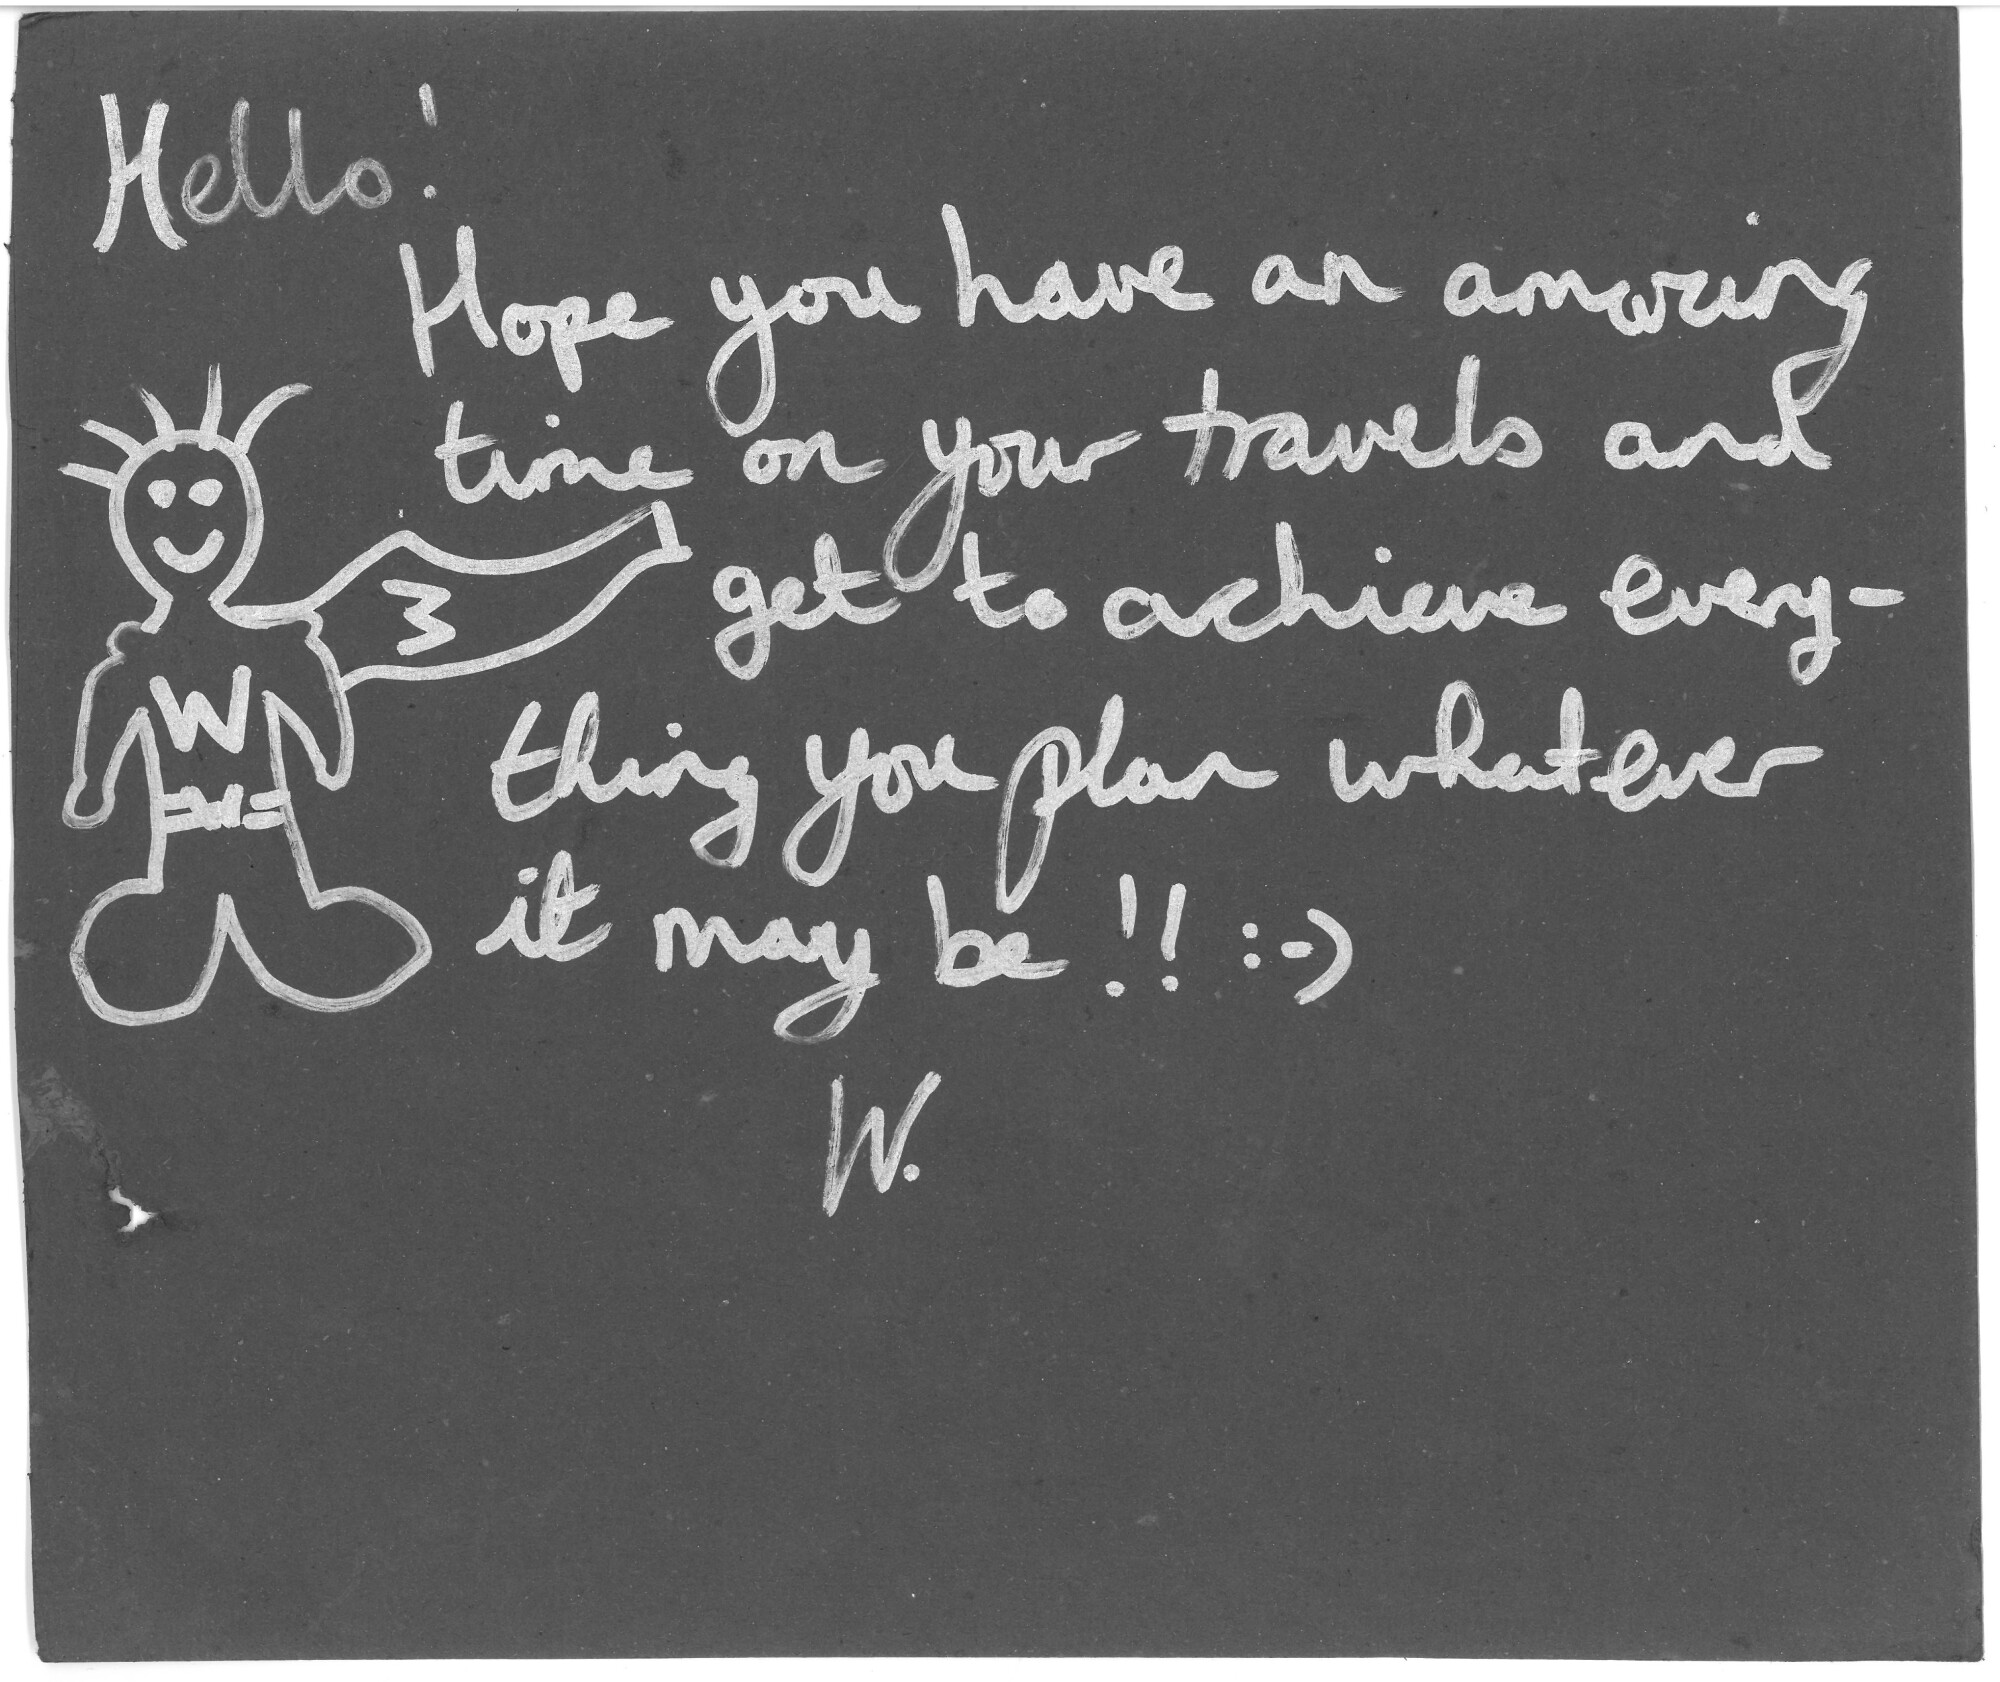 Hello!
Hope you have an amazing
time on your travels and
get to achieve every-
W
W
thing you plan whatever
W
it may be!! :-)
W.